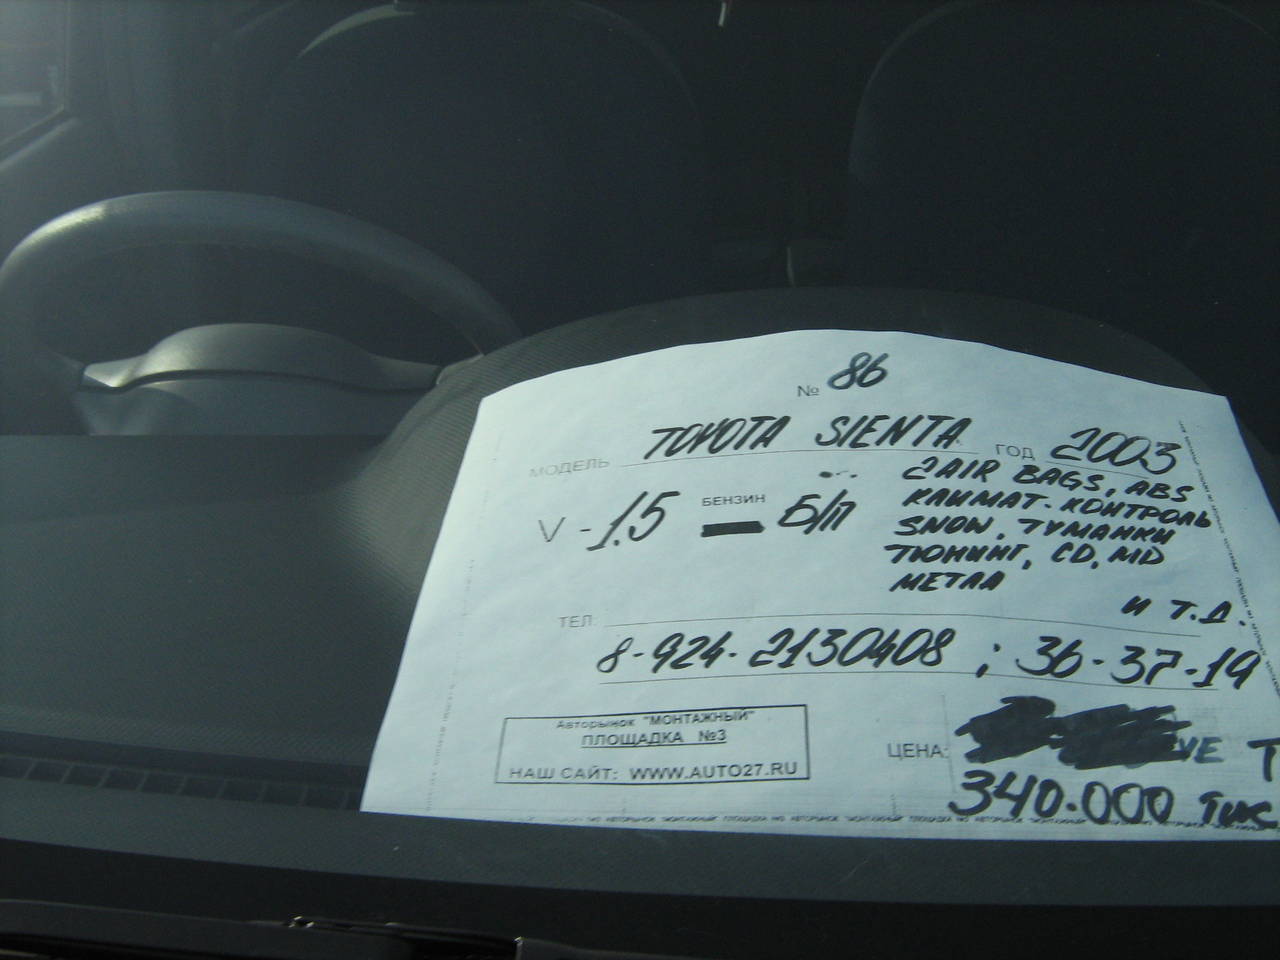 № 86
МОДЕЛЬ TOYOTA SIENTA ГОД 2003
V - 1.5 БЕНЗИН Б/П
2 AIR BAGS, ABS
КЛИМАТ-КОНТРОЛЬ
SNOW, ТУМАНКИ
ТЮНИНГ, CD, MD
МЕТЛА
И Т.Д.
ТЕЛ:
8-924-2130408 ; 36-37-19
Авторынок "МОНТАЖНЫЙ"
ПЛОЩАДКА №3
НАШ САЙТ: WWW.AUTO27.RU
ЦЕНА:
340.000 тыс